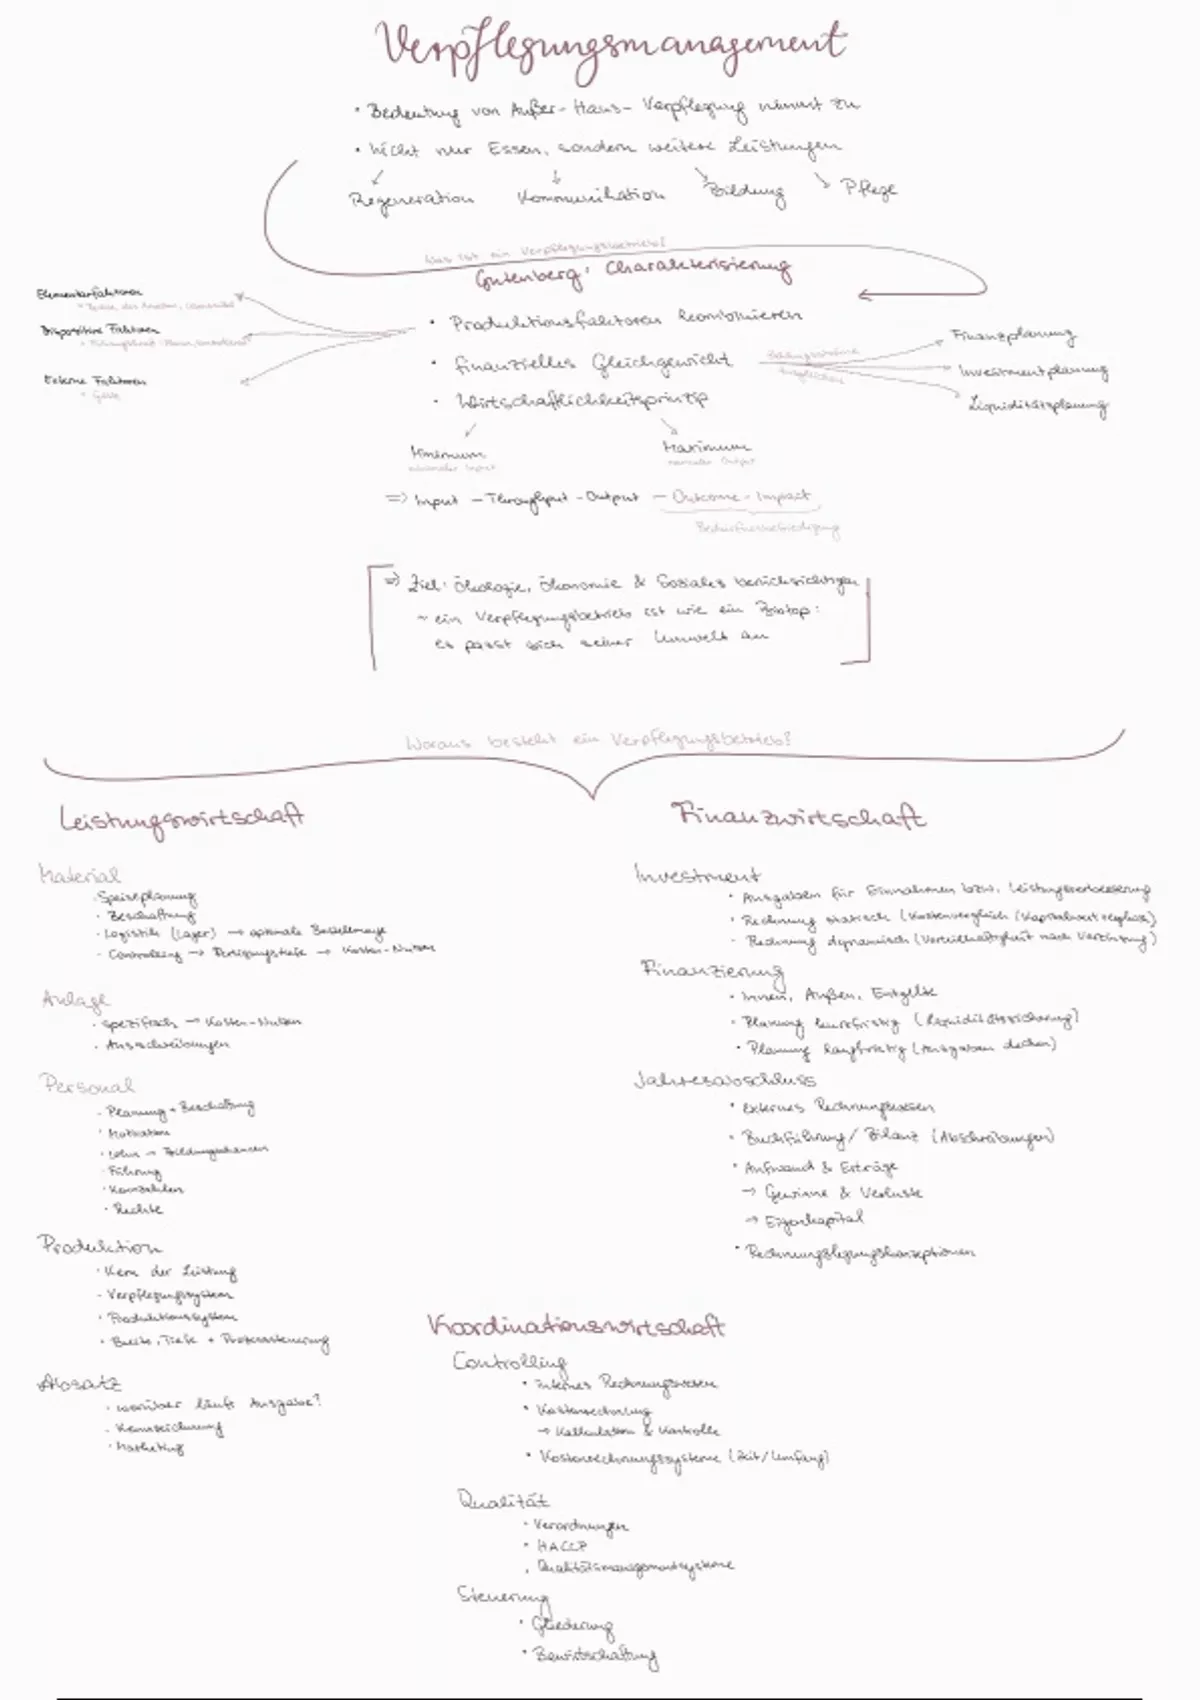 Verpflegungsmanagement
• Bedeutung von Außer-Haus-Verpflegung nimmt zu
• Nicht nur Essen, sondern weitere Leistungen
Regeneration Kommunikation Bildung Pflege
Was ist ein Verpflegungsbetrieb?
Gutenberg: Charakterisierung
Elementarfaktoren
Dispositive Faktoren
Externe Faktoren
• Gäste
• Produktionsfaktoren kombinieren
• finanzielles Gleichgewicht
• Wirtschaftlichkeitsprinzip
Finanzplanung
Investmentplanung
Liquiditätsplanung
Minimum Maximum
minimaler Input maximaler Output
=> Input - Throughput - Output - Outcome - Impact
Bedürfnisbefriedigung
=> Ziel: Ökologie, Ökonomie & Soziales berücksichtigen
~ ein Verpflegungsbetrieb ist wie ein Biotop:
es passt sich seiner Umwelt an
Woraus besteht ein Verpflegungsbetrieb?
Leistungswirtschaft
Material
• Speiseplanung
• Beschaffung
• Logistik (Lager) → optimale Bestellmenge
• Controlling → Fertigungstiefe → Kosten-Nutzen
Anlage
• spezifisch → Kosten-Nutzen
• Ausschreibungen
Personal
• Planung + Beschaffung
• Motivation
• Lohn → Bildungschancen
• Führung
• Kennzahlen
• Rechte
Produktion
• Kern der Leistung
• Verpflegungssystem
• Produktionssystem
• Breite, Tiefe + Prozesssteuerung
Absatz
• worüber läuft Ausgabe?
• Kennzeichnung
• Marketing
Finanzwirtschaft
Investment
• Ausgaben für Einnahmen bzw. Leistungsverbesserung
• Rechnung statisch (Kostenvergleich/Kapitalwertvergleich)
• Rechnung dynamisch (Vorteilhaftigkeit nach Verzinsung)
Finanzierung
• Innen, Außen, Entgelte
• Planung kurzfristig (Liquiditätssicherung)
• Planung langfristig (Ausgaben decken)
Jahresabschluss
• externes Rechnungswesen
• Buchführung/Bilanz (Abschreibungen)
• Aufwand & Erträge
→ Gewinne & Verluste
→ Eigenkapital
• Rechnungslegungskonzeptionen
Koordinationswirtschaft
Controlling
• internes Rechnungswesen
• Kostenrechnung
→ Kalkulation & Kontrolle
• Kostenrechnungssysteme (Zeit/Umfang)
Qualität
• Verordnungen
• HACCP
• Qualitätsmanagementsysteme
Steuerung
• Gliederung
• Bewirtschaftung